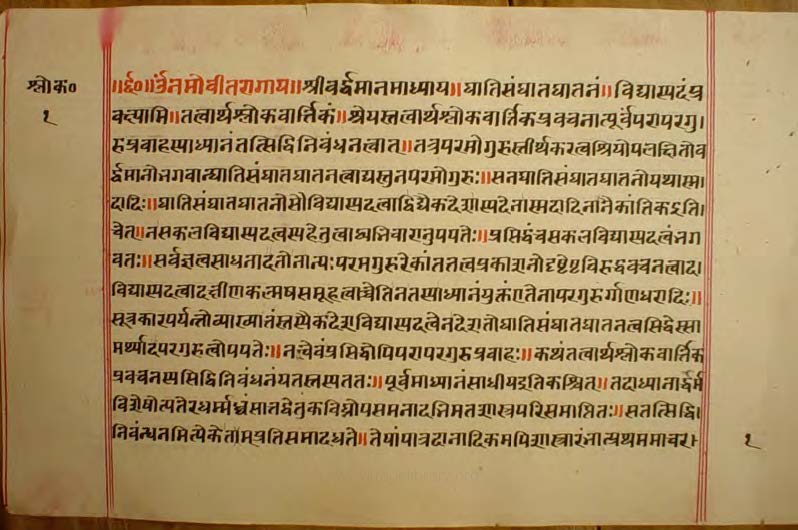 श्लोक०
१
॥र्द०॥ ॐनमोवीतरागाय॥श्रीवर्द्धमानमाध्याय॥घातिसंघातघातनं॥विद्यास्पदंप्र
वक्ष्यामि॥तत्वार्थश्लोकवार्त्तिकं॥श्रेयस्तत्वार्थश्लोकवार्त्तिकप्रवचनात्पूर्वंपरापरगु।
रुप्रवाहस्याध्यानंतत्सिद्धिनिबंधनत्वात्॥तत्रपरमोगुरुस्तीर्थकरत्वश्रियोपलक्षितोव
र्द्धमानोभगवान्घातिसंघातघातनत्वाद्यस्तुनपरमोगुरुः॥सनघातिसंघातघातनोयथास्म
दादिः॥घातिसंघातघातनोसौविद्यास्पदत्वाद्विद्यैकदेशास्पदेनास्मदादिनानैकांतिकइति।
चेत॥नसकलविद्यास्पदत्वस्पहेतुत्वाद्व्यभिचारानुपपतेः॥प्रसिद्धंचसकलविद्यास्पदत्वंभग
वतः॥सर्वज्ञत्वसाधनादतोनान्यःपरमगुरुरेकांततत्वप्रकाशनोदृष्टेष्टविरुद्धवचनत्वाद।
विद्यास्पदत्वादक्षीणकल्मषसमूहत्वाच्चेतिनतस्याध्यानंयुक्तंएतेनापरगुरुर्गणधरादिः॥
सूत्रकारपर्यन्तोव्याख्यातंस्तस्यैकदेशविद्यास्पदत्वेनदेशतोघातिसंघातघातनत्वसिद्धेस्सा
मर्थ्यादपरगुरुत्वोपपतेः॥नन्वेवंप्रसिद्धोपिपरापरगुरुप्रवाहः॥कथंतत्वार्थश्लोकवार्त्तिक
प्रवचनस्यसिद्धिनिबंधनंयतस्तस्यततः॥पूर्वमाध्यानंसाधीयइतिकश्चित॥तदाध्यानार्द्धर्म
विशेषोत्पतेरधर्म्मध्वंसातद्धेतुकविघ्नोपसमनादभिमतशास्त्रपरिसमाप्तितः॥सतत्सिद्धि।
निबंन्धनमित्येकेतान्प्रतिसमादधते॥तेषांपात्रदानादिकमपिशास्त्रारंभात्प्रथममाचर।
१